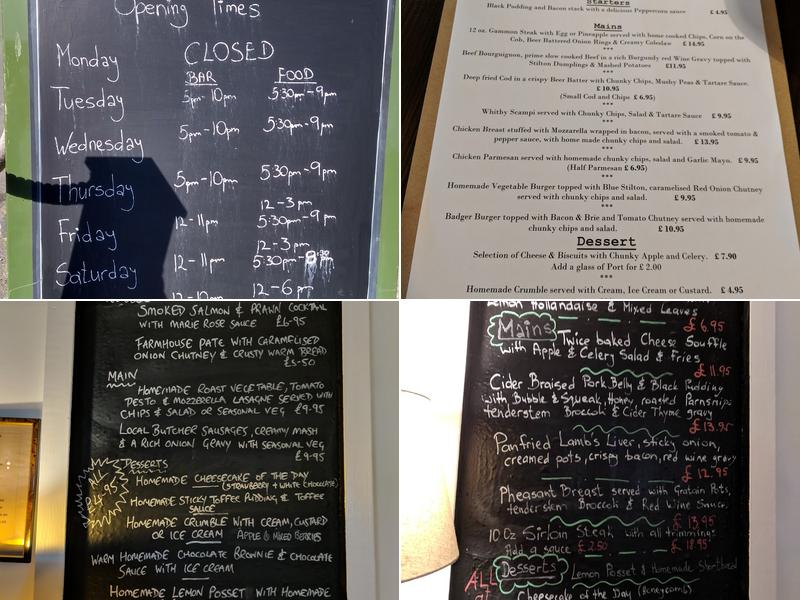 Opening Times
Monday CLOSED
BAR FOOD
Tuesday 5pm-10pm 5:30pm-9pm
Wednesday 5pm-10pm 5:30pm-9pm
Thursday 5pm-10pm 5:30pm-9pm
12-3pm
Friday 12-11pm 5:30pm-9pm
12-3pm
Saturday 12-11pm 5:30pm-8:30
12-10pm 12-6pm
Starters
Black Pudding and Bacon stack with a delicious Peppercorn sauce £ 4.95
Mains
12 oz. Gammon Steak with Egg or Pineapple served with home cooked Chips, Corn on the
Cob, Beer Battered Onion Rings & Creamy Coleslaw £ 14.95
***
Beef Bourguignon, prime slow cooked Beef in a rich Burgundy red Wine Gravy topped with
Stilton Dumplings & Mashed Potatoes £11.95
***
Deep fried Cod in a crispy Beer Batter with Chunky Chips, Mushy Peas & Tartare Sauce.
£ 10.95
(Small Cod and Chips £ 6.95)
***
Whitby Scampi served with Chunky Chips, Salad & Tartare Sauce £ 9.95
***
Chicken Breast stuffed with Mozzarella wrapped in bacon, served with a smoked tomato &
pepper sauce, with home made chunky chips and salad. £ 13.95
***
Chicken Parmesan served with homemade chunky chips, salad and Garlic Mayo. £ 9.95
(Half Parmesan £ 6.95)
***
Homemade Vegetable Burger topped with Blue Stilton, caramelised Red Onion Chutney
served with chunky chips and salad. £ 9.95
***
Badger Burger topped with Bacon & Brie and Tomato Chutney served with homemade
chunky chips and salad. £ 10.95
Dessert
Selection of Cheese & Biscuits with Chunky Apple and Celery. £ 7.90
Add a glass of Port for £ 2.00
***
Homemade Crumble served with Cream, Ice Cream or Custard. £ 4.95
SMOKED SALMON & PRAWN COCKTAIL
WITH MARIE ROSE SAUCE £6-95
FARMHOUSE PATE WITH CARAMELISED
ONION CHUTNEY & CRUSTY WARM BREAD
£5-50
MAIN
HOMEMADE ROAST VEGETABLE, TOMATO
PESTO & MOZZARELLA LASAGNE SERVED WITH
CHIPS & SALAD OR SEASONAL VEG £9-95
LOCAL BUTCHER SAUSAGES, CREAMY MASH
& A RICH ONION GRAVY WITH SEASONAL VEG
£9-95
DESSERTS
HOMEMADE CHEESECAKE OF THE DAY
(STRAWBERRY + WHITE CHOCOLATE)
HOMEMADE STICKY TOFFEE PUDDING & TOFFEE
SAUCE
HOMEMADE CRUMBLE WITH CREAM, CUSTARD
OR ICE CREAM APPLE & MIXED BERRIES
WARM HOMEMADE CHOCOLATE BROWNIE & CHOCOLATE
SAUCE WITH ICE CREAM
HOMEMADE LEMON POSSET WITH HOMEMADE
Lemon Hollandaise & Mixed Leaves
£ 6.95
Mains Twice baked Cheese Souffle
with Apple & Celery Salad & Fries
£ 11.95
Cider Braised Pork Belly & Black Pudding
with Bubble & Squeak, Honey roasted Parnsnips
tenderstem Broccoli & Cider Thyme gravy
£ 13.95
Panfried Lamb's Liver, sticky onion,
creamed pots, crispy bacon, red wine gravy
£ 12.95
Pheasant Breast served with Gratain Pots,
tenderstem Broccoli & Red Wine Sauce.
£ 13.95
10 Oz Sirloin Steak with all trimmings
Add a sauce £2.50 £ 18.95
Desserts Lemon Posset & Homemade Shortbread
ALL at Cheesecake of the Day (Honeycomb)